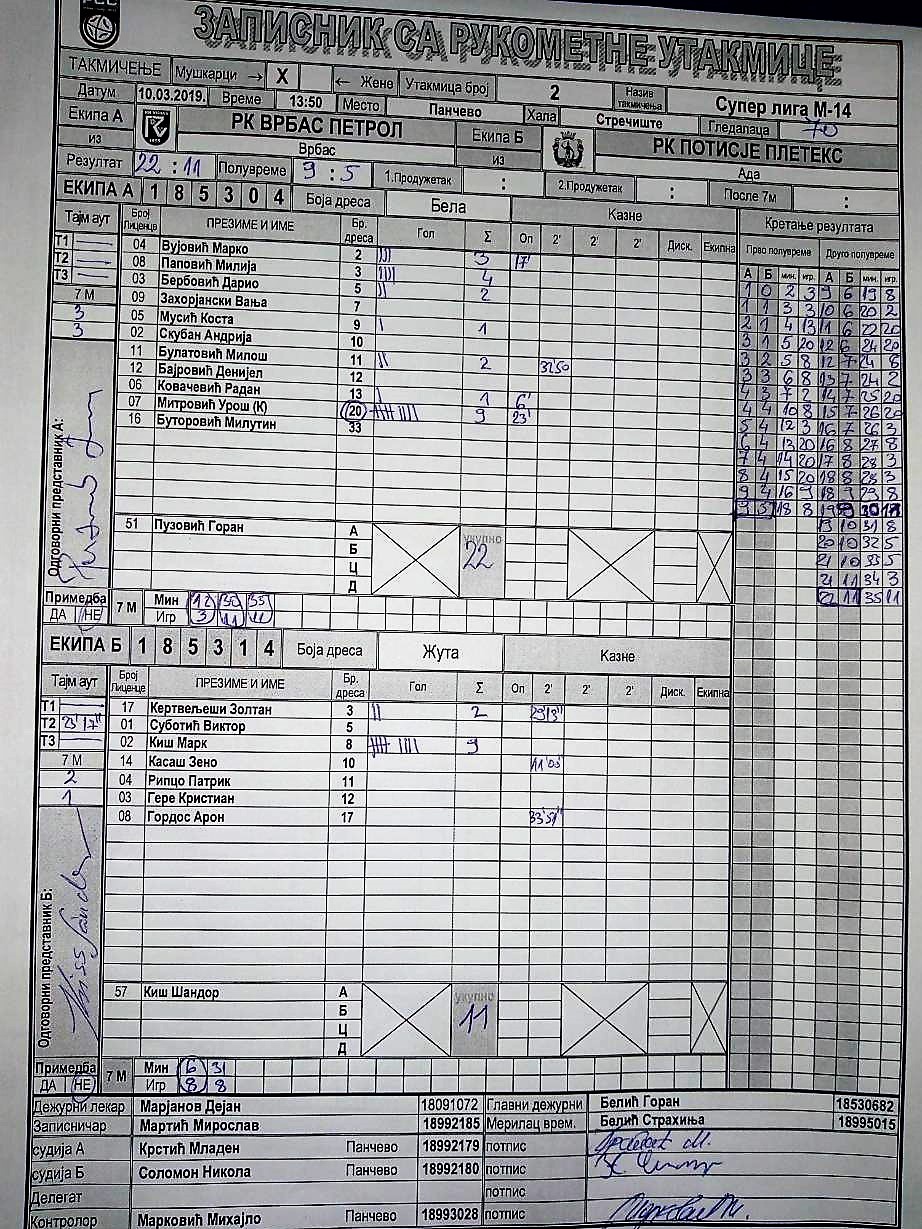 ЗАПИСНИК СА РУКОМЕТНЕ УТАКМИЦЕ
ТАКМИЧЕЊЕ Мушкарци → X ← Жене Утакмица број 2 Назив такмичења Супер лига М-14
Датум 10.03.2019. Време 13:50 Место Панчево Хала Стречиште Гледалаца 70
Екипа А из РК ВРБАС ПЕТРОЛ Врбас Екипа Б из РК ПОТИСЈЕ ПЛЕТЕКС Ада
Резултат 22 : 11 Полувреме 9 : 5 1.Продужетак : 2.Продужетак : После 7м :
ЕКИПА А 1 8 5 3 0 4 Боја дреса Бела Казне Кретање резултата
Тајм аут Број Лиценце ПРЕЗИМЕ И ИМЕ Бр. дреса Гол Σ Оп 2' 2' 2' Диск. Екипна Прво полувреме Друго полувреме
А Б мин. игр. А Б мин. игр.
Т1 04 Вујовић Марко 2 ||| 3 17'
Т2 08 Паповић Милија 3 |||| 4
Т3 03 Бербовић Дарио 5 || 2
7 М 09 Захорјански Вања 7
3 05 Мусић Коста 9 | 1
3 02 Скубан Андрија 10
11 Булатовић Милош 11 || 2 32'50
12 Бајровић Денијел 12
06 Ковачевић Радан 13 | 1 6'
07 Митровић Урош (К) 20 9 23'
16 Буторовић Милутин 33
1 0 2 3 9 6 19 8
1 1 3 3 10 6 20 2
2 1 4 13 11 6 22 20
3 1 5 20 12 6 24 20
3 2 5 8 12 7 24 8
3 3 6 8 13 7 24 2
4 3 7 2 14 7 25 20
4 4 10 8 15 7 26 20
5 4 12 3 16 7 26 3
6 4 13 20 16 8 27 8
7 4 14 20 17 8 28 3
8 4 15 20 18 8 28 3
9 4 16 9 18 9 29 8
9 5 18 8 19 9 30
19 10 31 8
20 10 32 5
21 10 33 5
21 11 34 3
22 11 35 11
Одговорни представник А:
51 Пузовић Горан А укупно 22
Б
Ц
Д
Примедба ДА НЕ 7 М Мин 12 30 35
Игр 3 11 11
ЕКИПА Б 1 8 5 3 1 4 Боја дреса Жута Казне
Тајм аут Број Лиценце ПРЕЗИМЕ И ИМЕ Бр. дреса Гол Σ Оп 2' 2' 2' Диск. Екипна
Т1 17 Кертвељеши Золтан 3 || 2 29'13"
Т2 23' 17" 01 Суботић Виктор 5
Т3 02 Киш Марк 8 9
7 М 14 Касаш Зено 10 11'03"
2 04 Рипцо Патрик 11
1 03 Гере Кристиан 12
08 Гордос Арон 17 33'51"
Одговорни представник Б:
57 Киш Шандор А укупно 11
Б
Ц
Д
Примедба ДА НЕ 7 М Мин 6 31
Игр 8 8
Дежурни лекар Марјанов Дејан 18091072 Главни дежурни Белић Горан 18530682
Записничар Мартић Мирослав 18992185 Мерилац врем. Белић Страхиња 18995015
судија А Крстић Младен Панчево 18992179 потпис
судија Б Соломон Никола Панчево 18992180 потпис
Делегат потпис
Контролор Марковић Михајло Панчево 18993028 потпис